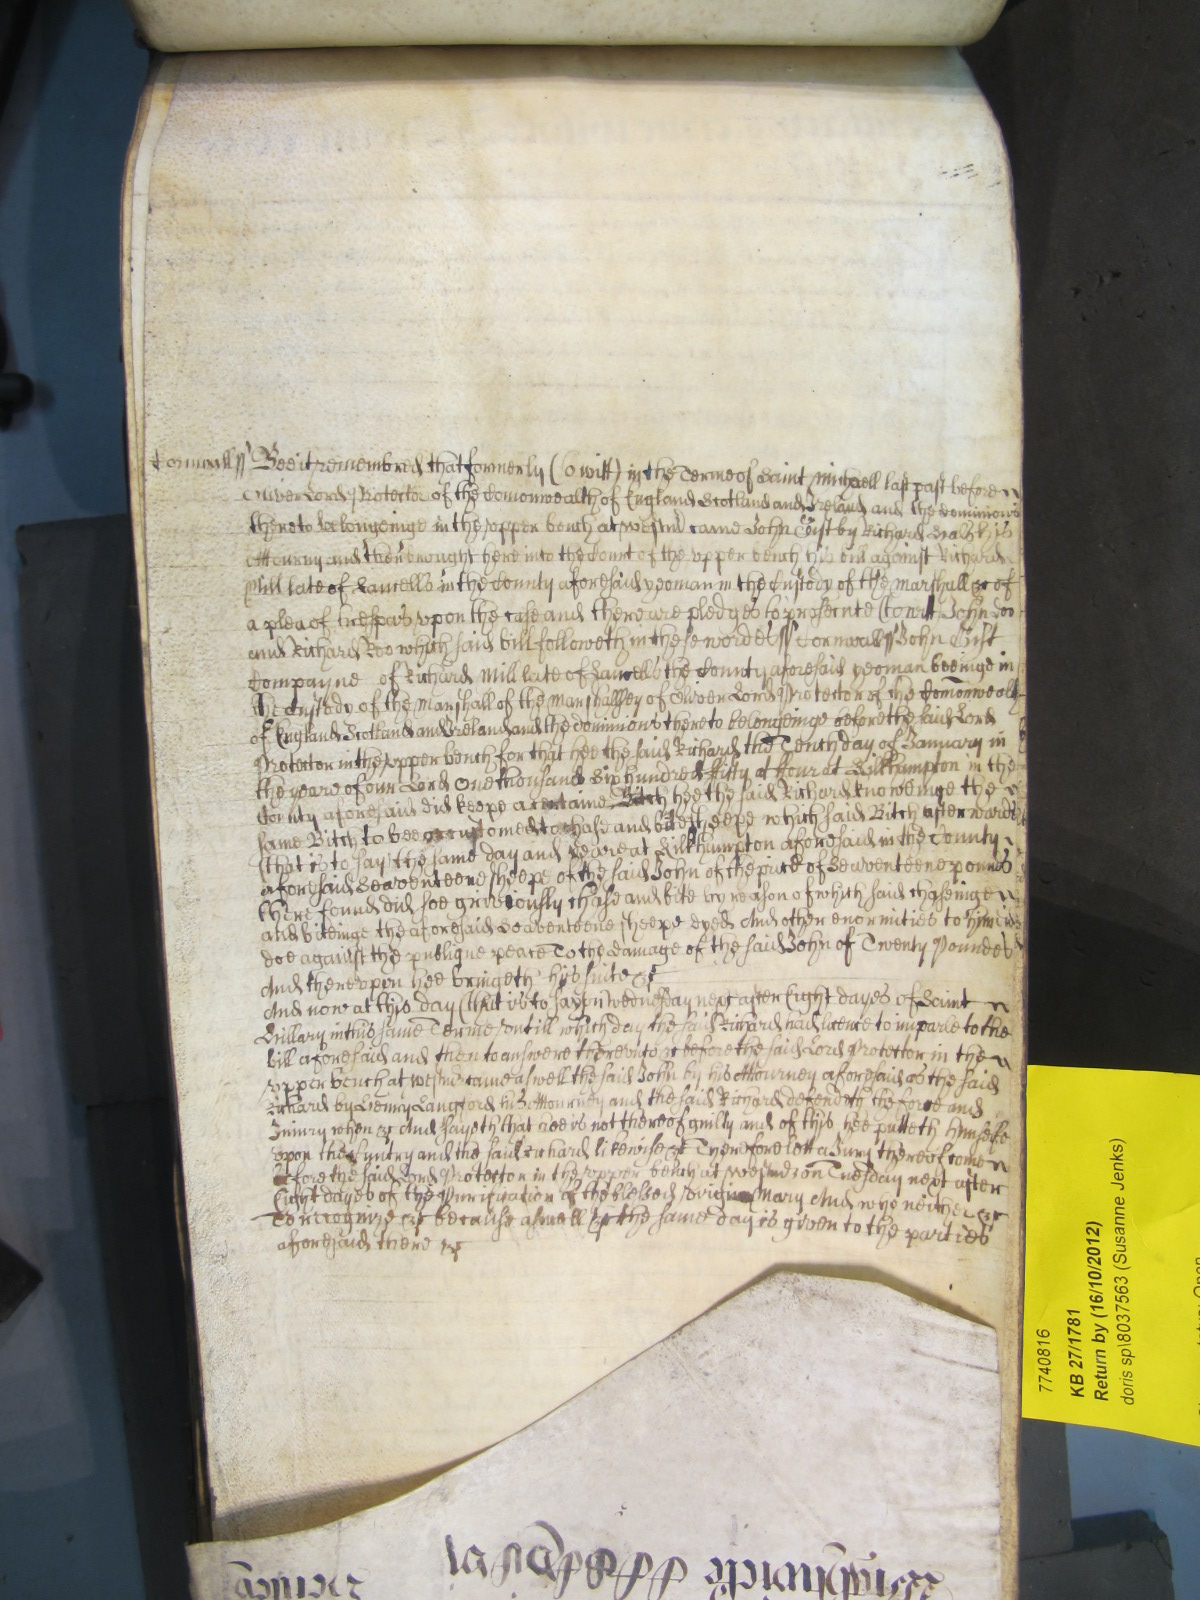 Cornwall ss Bee it remembred that formerly (to witt) in the Terme of Saint Michaell last past before
Oliver Lord Protector of the Comonwealth of England Scotland and Ireland and the dominions
thereto belongeinge in the upper bench at Westmr came John Cist by Richard his
Attourny and then brought here into the Court of the upper bench his bill against Richard
Mill late of Launcells in the County aforesaid yeoman in the Custody of the Marshall &c of
a plea of trespas upon the case and there are pledges to prosecute (to witt John Doo
and Richard Roo which said bill followeth in these wordes ss Cornwall ss John Cist
Compayne of Richard Mill late of Launcells the County aforesaid yeoman beeinge in
the Custody of the Marshall of the Marshallsey of Oliver Lord Protector of the Comonwealth
of England Scotland and Ireland and the dominions thereto belongeinge before the said Lord
Protector in the upper bench for that hee the said Richard the Tenth day of January in
the yeare of our Lord One thousand Six hundred Fifty et Four at Kilkhampton in the
County aforesaid did keepe a certaine Bitch hee the said Richard knoweinge the
same Bitch to bee accustomed to chase and bite sheepe which said Bitch afterwards
(that is to say) the same day and yeare at Kilkhampton aforesaid in the County
aforesaid Seaventeene sheepe of the said John of the price of Seaventeene pounds
there found did soe grieviously chase and bite by reason of which said chaseinge
and biteinge the aforesaid Seaventeene sheepe dyed And other enormities to him
doe against the publique peace To the damage of the said John of Twenty Poundes
And thereupon hee bringeth his suite &c
And now at this day (that is to say) on Wednesday next after Eight dayes of Saint
Hillary in this same Terme untill which day the said Richard had licence to imparle to the
bill aforesaid and then to answere thereunto &c before the said Lord Protector in the
upper bench at Westmr came aswell the said John by his Attourney aforesaid as the said
Richard by Henry Langford his Attourney and the said Richard defendeth the force and
Iniury when &c And sayeth that hee is not thereof guilty and of this hee putteth himselfe
upon the Cuntry and the said Richard likewise &c Therefore lett a Jury thereof come
before the said Lord Protector in the upper bench at Westmr on Tuesday next after
Eight dayes of the Purification of the blessed Virgin Mary And who neither &c
To recognize &c because aswell &c the same day is given to the parties
aforesaid there &c
7740816
KB 27/1781
Return by (16/10/2012)
doris sp\8037563 (Susanne Jenks)